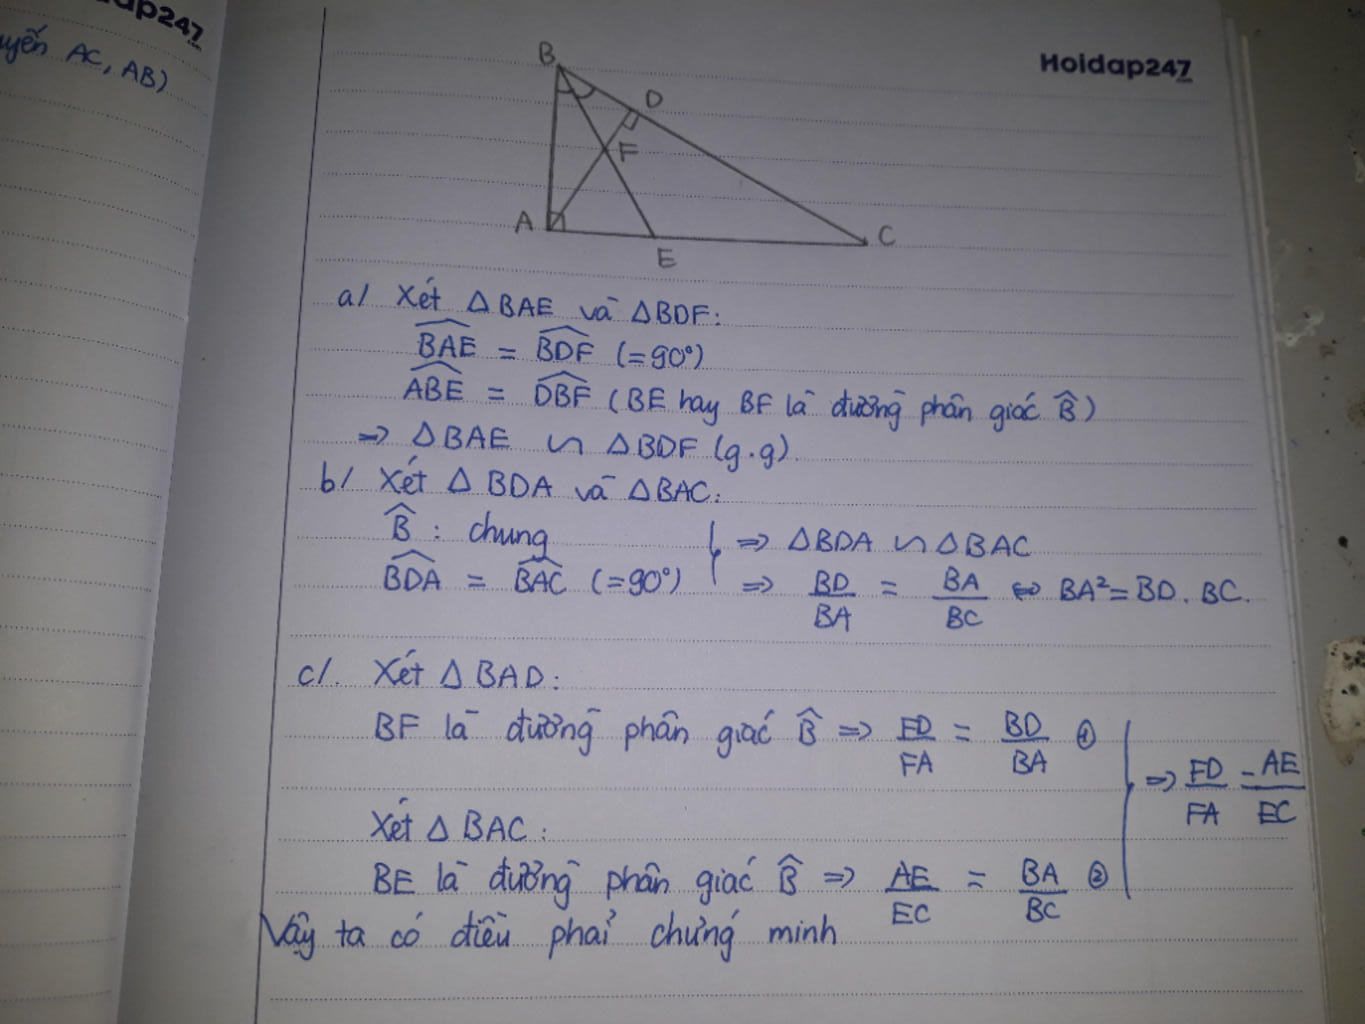 dap247
uyến AC, AB)
Hoidap247
B
D
F
A
E
C
a/ Xét △BAE và △BDF:
\widehat{BAE} = \widehat{BDF} (=90°)
\widehat{ABE} = \widehat{DBF} (BE hay BF là đường phân giác \widehat{B})
=> △BAE ∽ △BDF (g.g).
b/ Xét △BDA và △BAC:
\widehat{B} : chung
\widehat{BDA} = \widehat{BAC} (=90°)
=> △BDA ∽ △BAC
=> BD/BA = BA/BC <=> BA² = BD . BC.
c/. Xét △BAD:
BF là đường phân giác \widehat{B} => FD/FA = BD/BA ①
Xét △BAC:
BE là đường phân giác \widehat{B} => AE/EC = BA/BC ②
=> FD/FA = AE/EC
Vậy ta có điều phải chứng minh